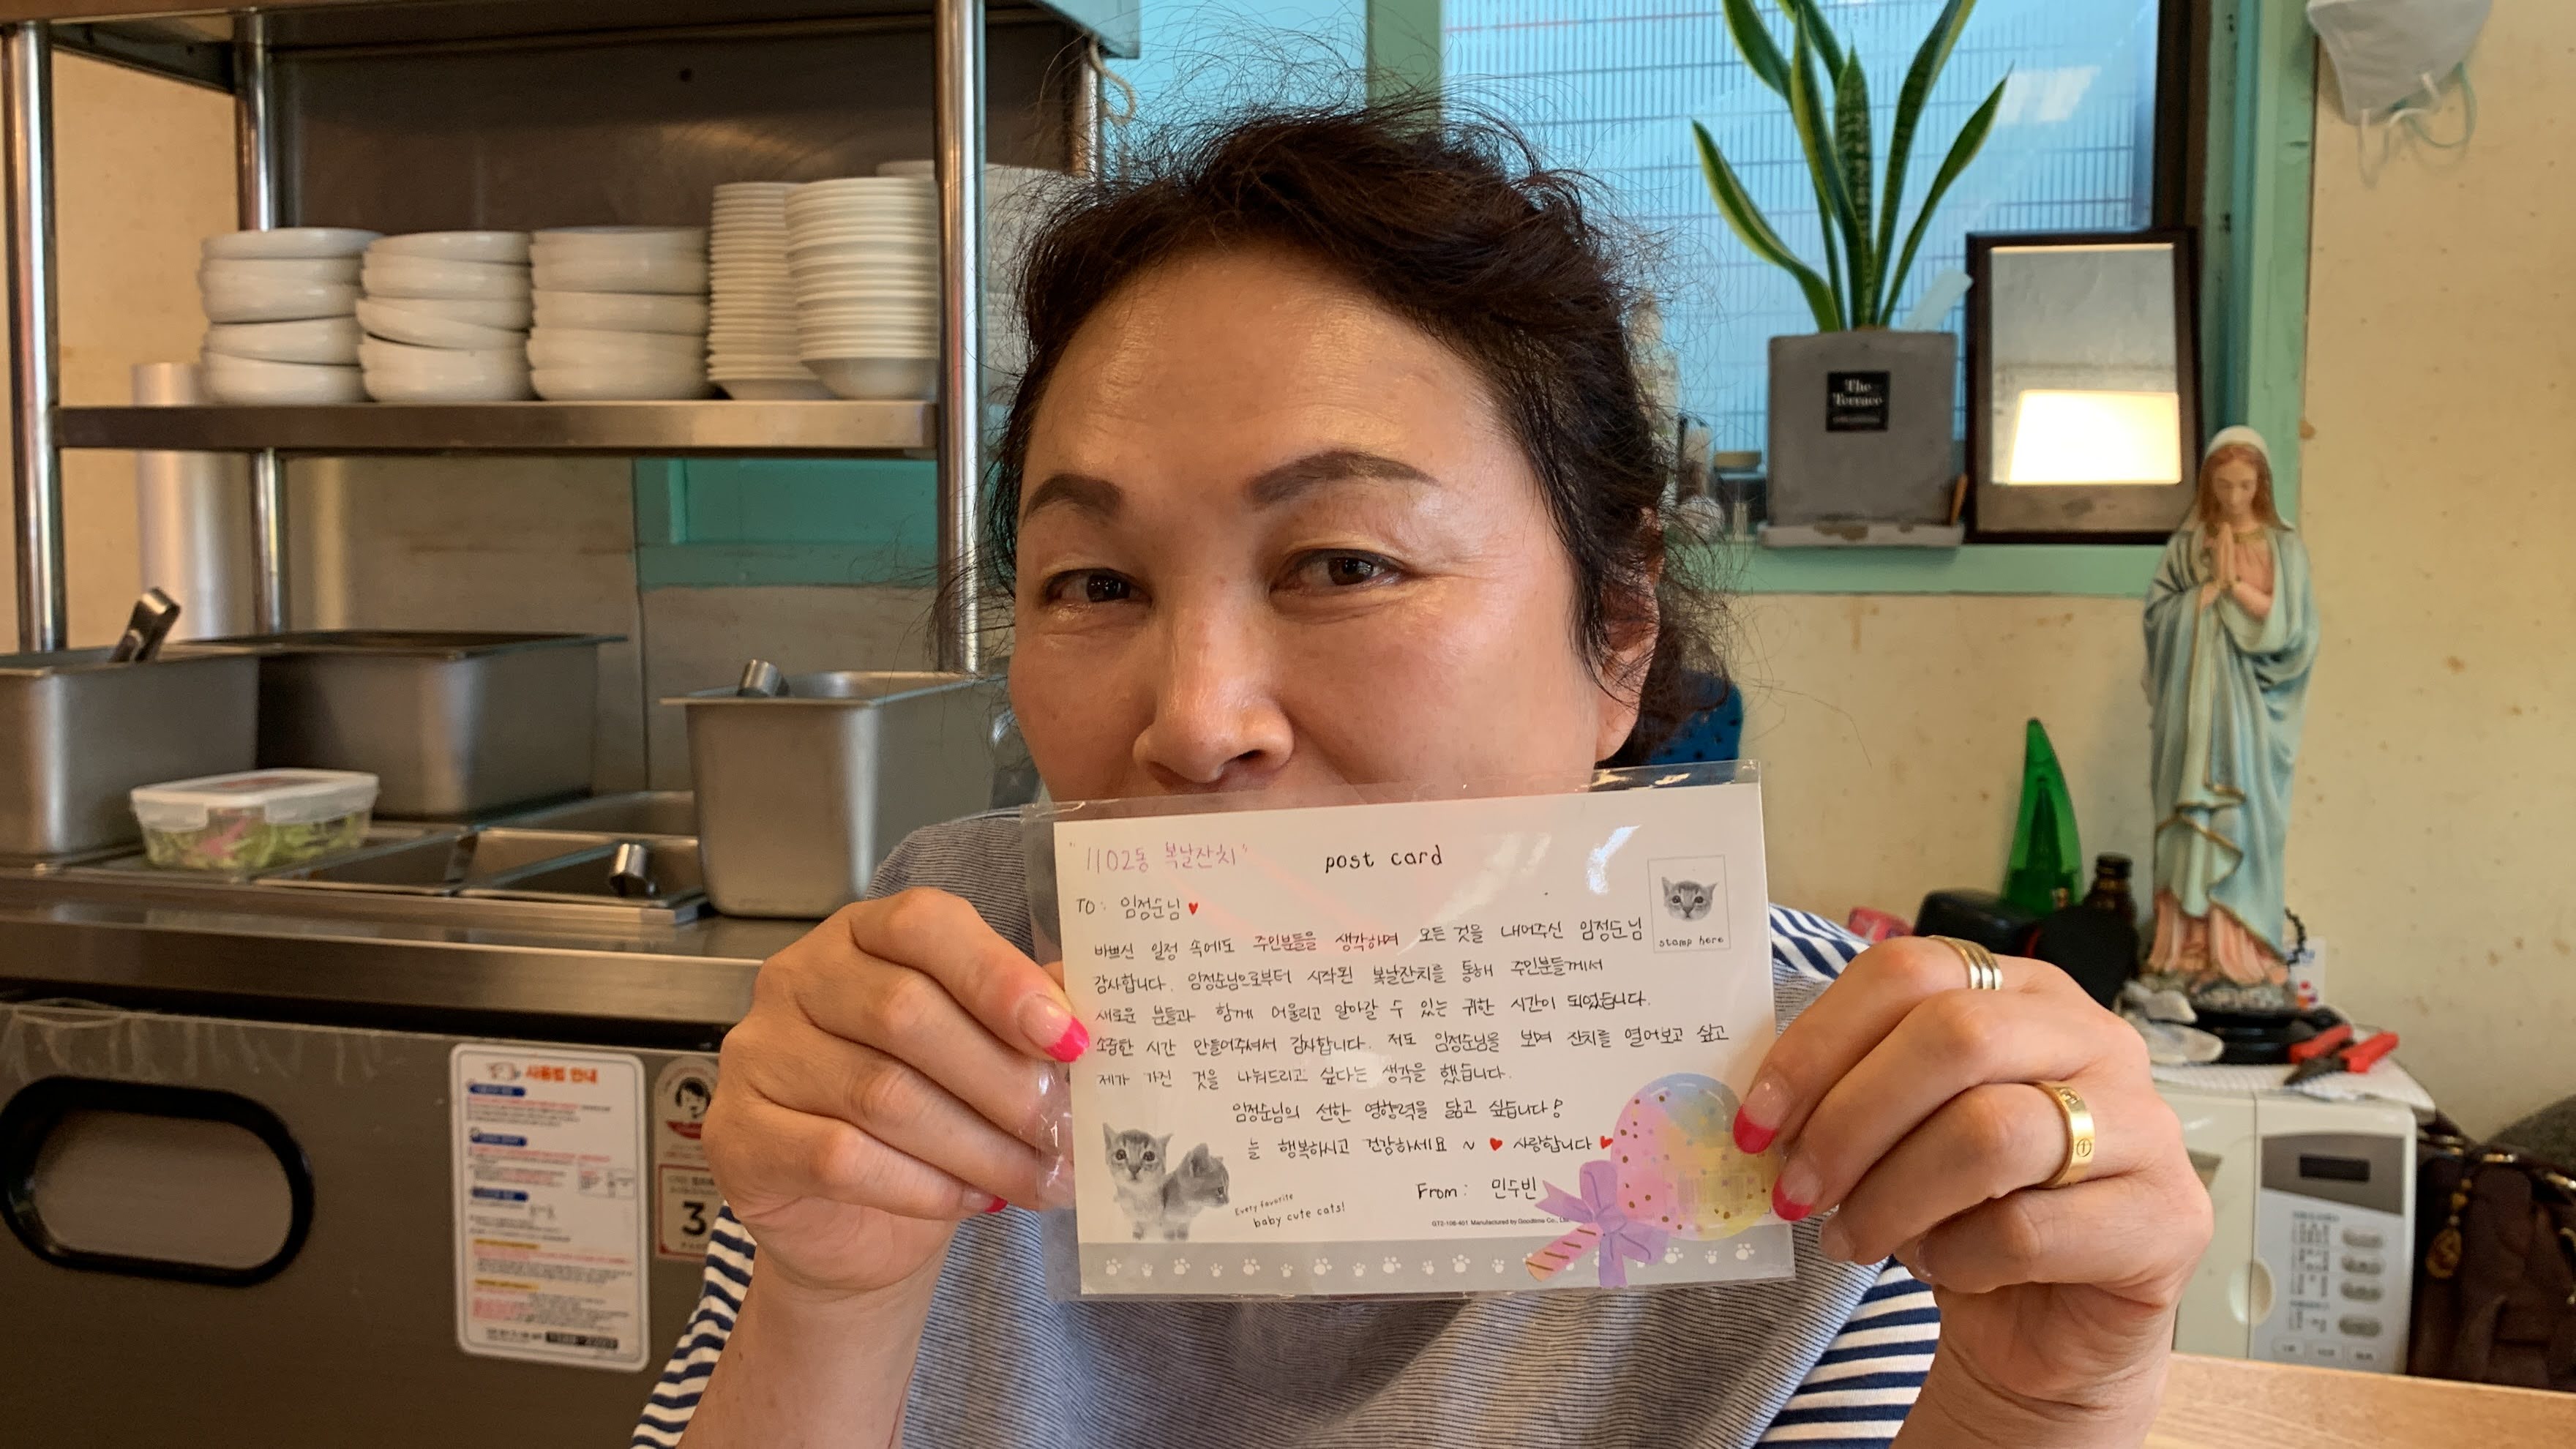 "1102동 복날잔치"
post card
TO: 임정순님♥
바쁘신 일정 속에도 주인분들을 생각하며 모든 것을 내어주신 임정순님
감사합니다. 임정순님으로부터 시작된 복날잔치를 통해 주인분들께서
새로운 분들과 함께 어울리고 알아갈 수 있는 귀한 시간이 되었습니다.
소중한 시간 만들어주셔서 감사합니다. 저도 임정순님을 보며 잔치를 열어보고 싶고
제가 가진 것을 나눠드리고 싶다는 생각을 했습니다.
임정순님의 선한 영향력을 닮고 싶습니다!
늘 행복하시고 건강하세요 ~ ♥ 사랑합니다 ♥
From: 민수빈
stamp here
Every favorite
baby cute cats!
The
Terrace
사용법 안내
3